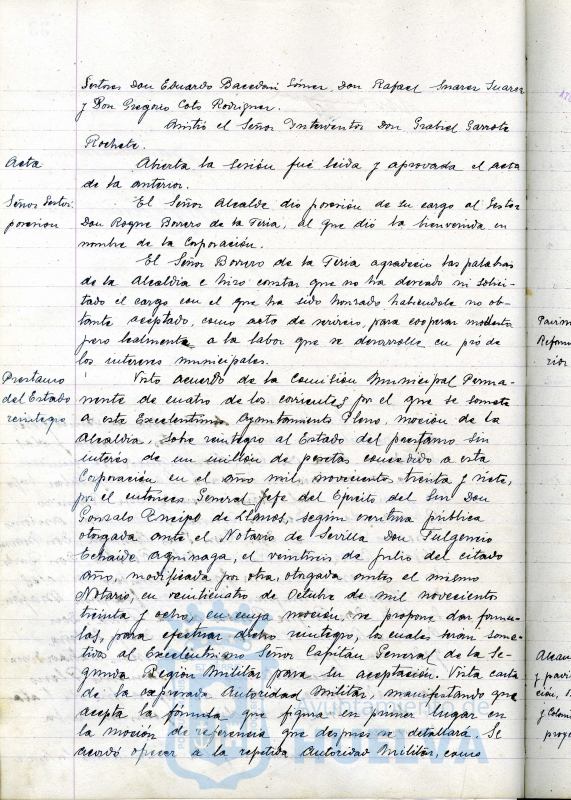 Señores Don Eduardo Bacedoni Gómez, Don Rafael Suarez Suarez
y Don Gregorio Coto Rodriguez.
Asistió el Señor Interventor Don Gabriel Garrote
Rochete.
Acta
Abierta la sesión fué leida y aprovada el acta
de la anterior.
Señor Gestor
posesion
El Señor Alcalde dió posesión de su cargo al Gestor
Don Roque Borrero de la Feria, al que dió la bienvenida en
nombre de la Corporación.
El Señor Borrero de la Feria agradeció las palabras
de la Alcaldia e hizo constar que no ha deseado ni solici-
tado el cargo con el que ha sido honrado habiendole no ob-
tante aceptado, como acto de servicio, para cooperar modesta
pero lealmente a la labor que se desarrolle en pró de
los intereses municipales.
Prestamo
del Estado
reintegro
Visto acuerdo de la Comisión Municipal Perma-
nente de cuatro de los corrientes por el que se somete
a este Excelentisimo Ayuntamiento Pleno, moción de la
Alcaldia, sobre reintegro al Estado del prestamo sin
interés de un millón de pesetas concedido a esta
Corporación en el año mil novecientos treinta y siete,
por el entonces General Jefe del Ejercito del Sur Don
Gonzalo Queipo de Llanos, según escritura pública
otorgada ante el Notario de Sevilla Don Fulgencio
Echaide Aguinaga, el veintiseis de Julio del citado
año, modificada por otra, otorgada antes el mismo
Notario, en veinticuatro de Octubre de mil novecientos
treinta y ocho, en cuya moción se propone dos formu-
las, para efectuar dicho reintegro, las cuales serán some-
tidas al Excelentisimo Señor Capitán General de la Se-
gunda Región Militar para su aceptación. Vista carta
de la expresada Autoridad Militar, manifestando que
acepta la fórmula que figura en primer lugar en
la moción de referencia que despues se detallará. Se
acordó ofrecer a la repetida Autoridad Militar, como
Ayuntamiento de
Reform
y pavi
ción,
y Colon
proye